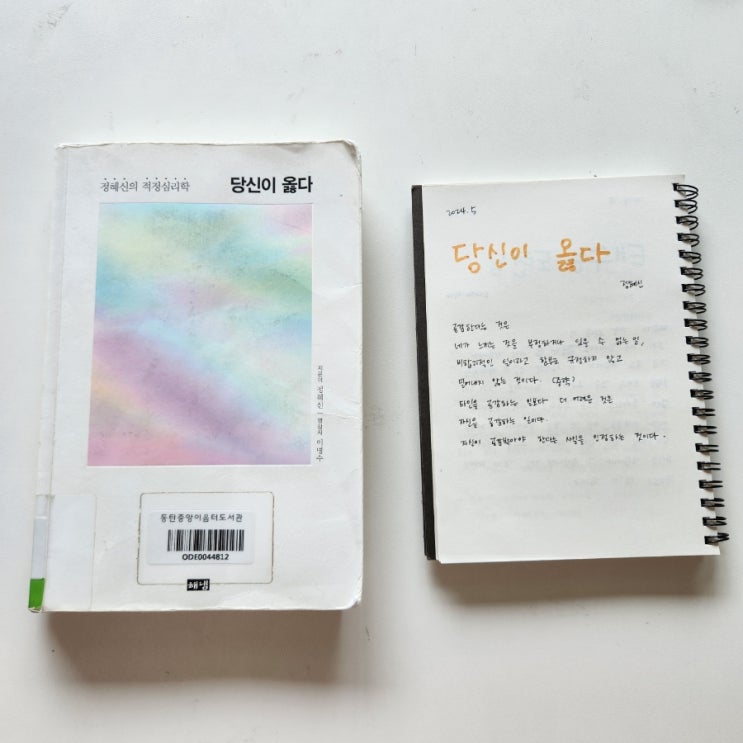 정혜신의 적정심리학
당신이 옳다
지은이 정혜신 | 영감자 이명수
동탄중앙이음터도서관
ODE0044812
해냄
2024. 5
당신이 옳다
정혜신
공감한다는 것은
네가 느끼는 것을 부정하거나 있을 수 없는 일,
비합리적인 일이라고 함부로 규정하지 않고
밀어내지 않는 것이다. (중략)
타인을 공감하는 일보다 더 어려운 것은
자신을 공감하는 일이다.
자신이 공감받아야 한다는 사실을 인정하는 것이다.